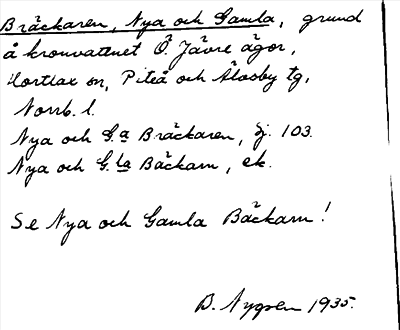 Bräckaren, Nya och Gamla, grund
å kronvattnet Ö. Jävre ägor,
Hortlax sn, Piteå och Älvsby tg,
Norrb. l.
Nya och G:a Bräckaren, Sj. 103.
Nya och G:la Bäckarn, ek.
Se Nya och Gamla Bäckarn!
B. Nygren 1935.